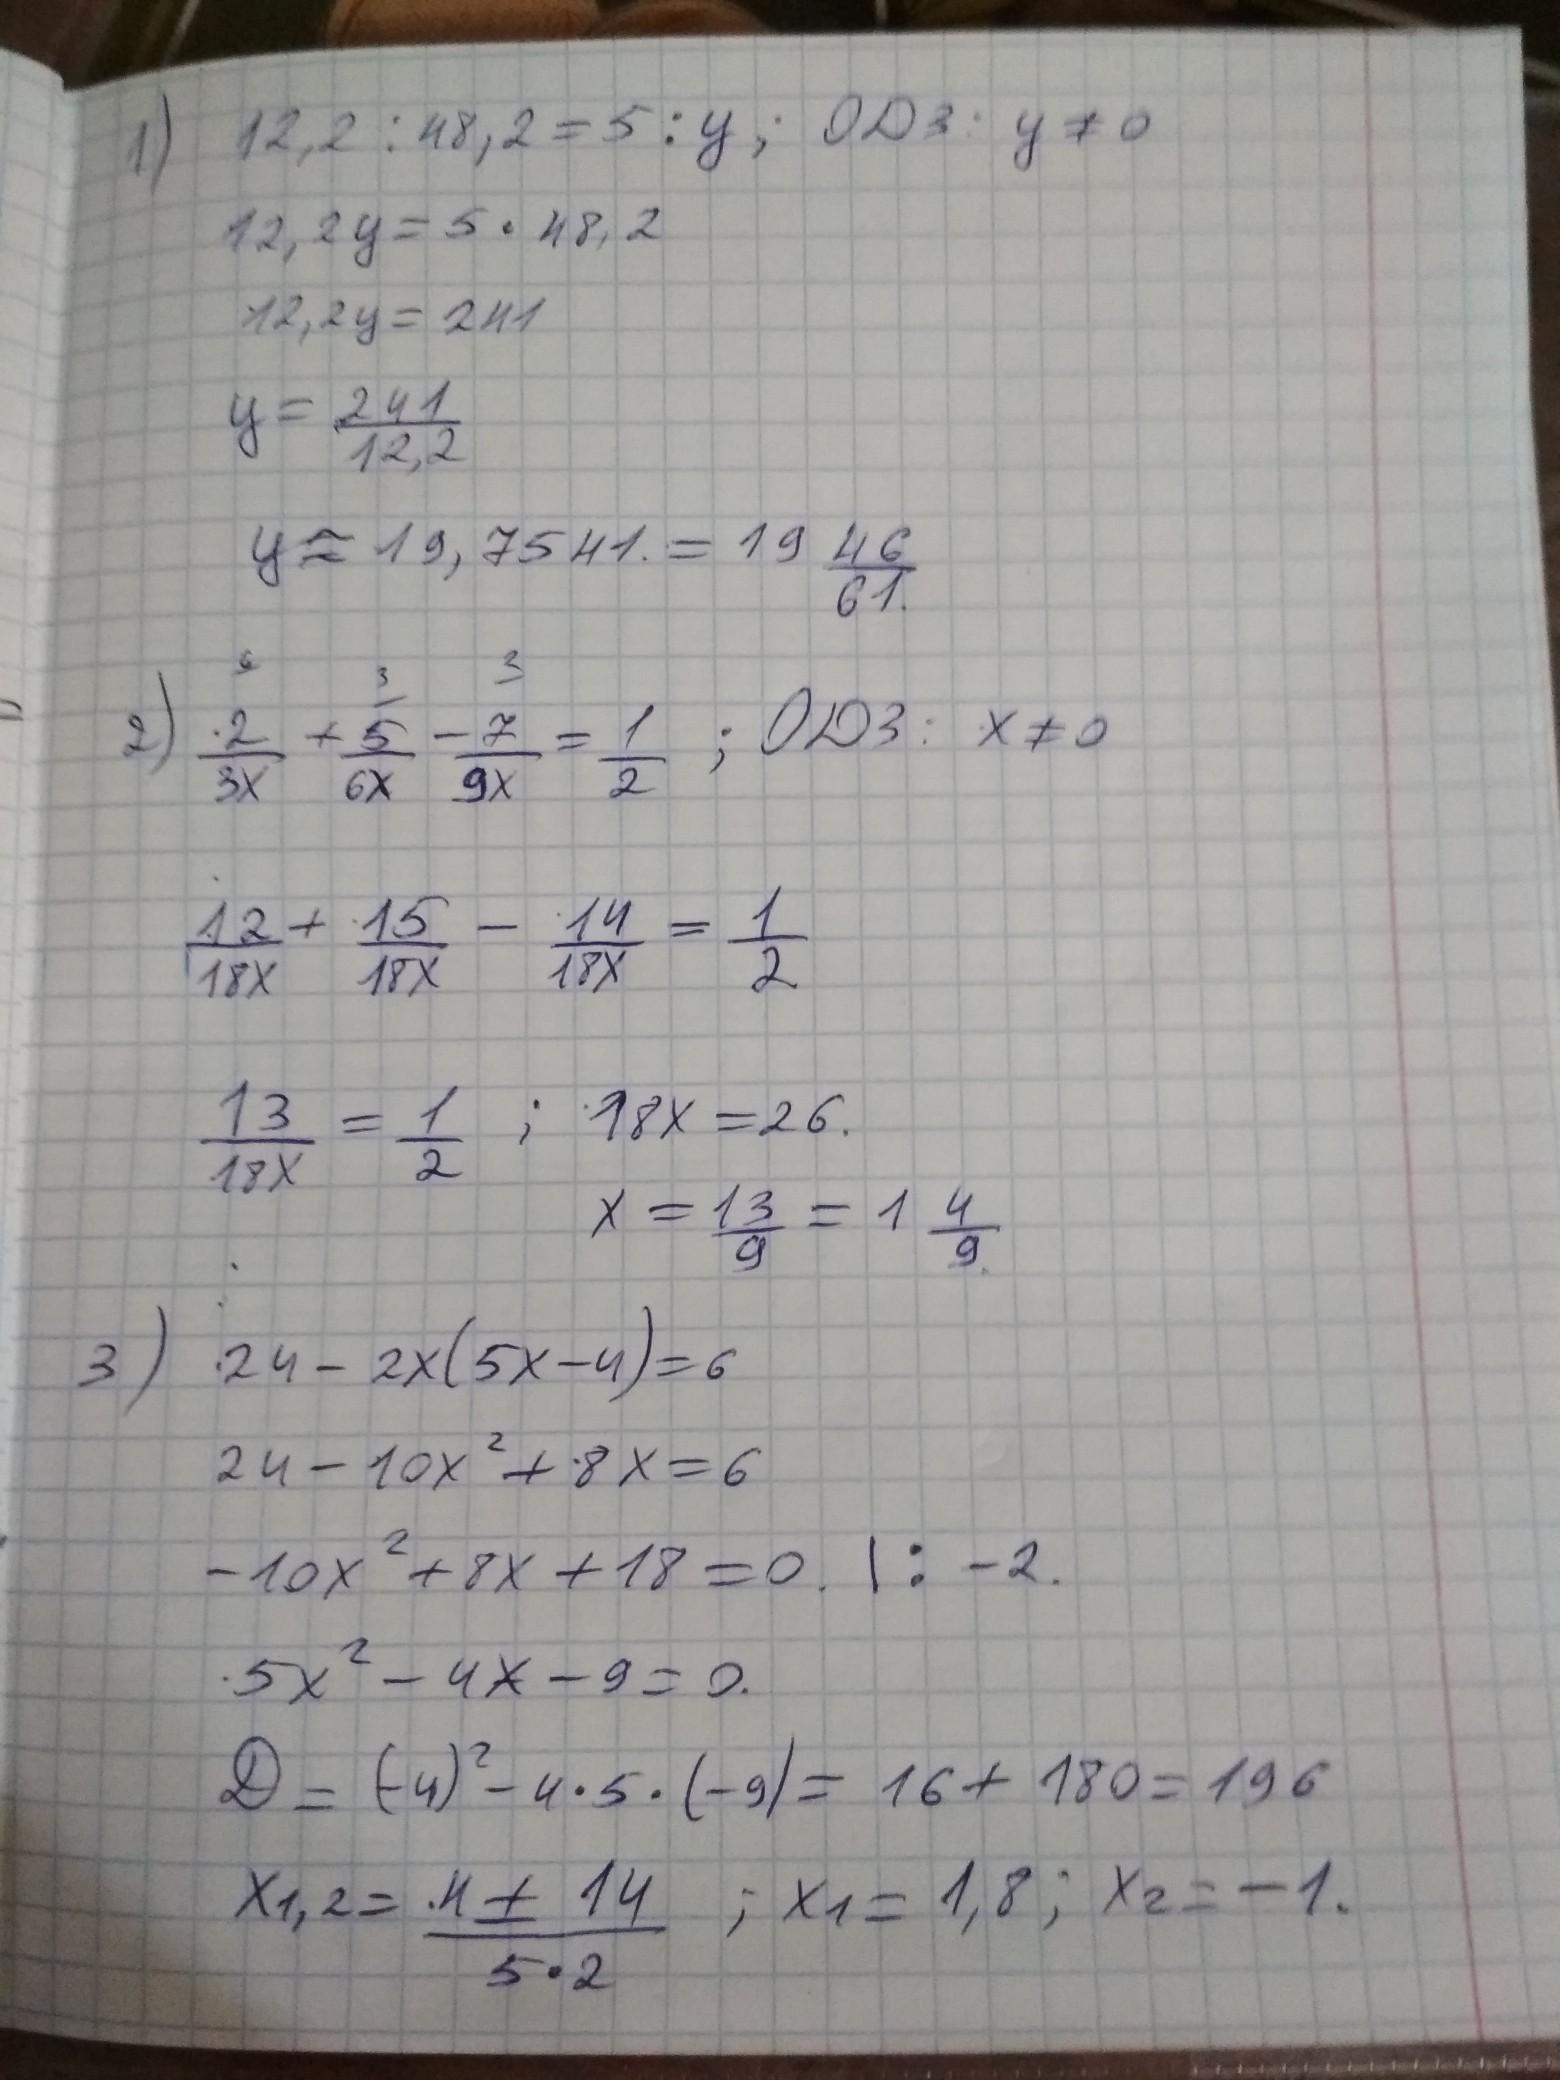 1) 12,2 : 48,2 = 5 : y ; ОДЗ : y ≠ 0
12,2y = 5 · 48,2
12,2y = 241
y = 241/12,2
y ≈ 19,7541. = 19 46/61.
6 3 2
2) 2/3x + 5/6x - 7/9x = 1/2 ; ОДЗ : x ≠ 0
12/18x + 15/18x - 14/18x = 1/2
13/18x = 1/2 ; 18x = 26.
x = 13/9 = 1 4/9.
3) 24 - 2x(5x-4) = 6
24 - 10x² + 8x = 6
-10x² + 8x + 18 = 0. | : -2.
5x² - 4x - 9 = 0.
D = (-4)² - 4·5·(-9) = 16 + 180 = 196
x1,2 = 4 ± 14 / 5·2 ; x1 = 1,8 ; x2 = -1.